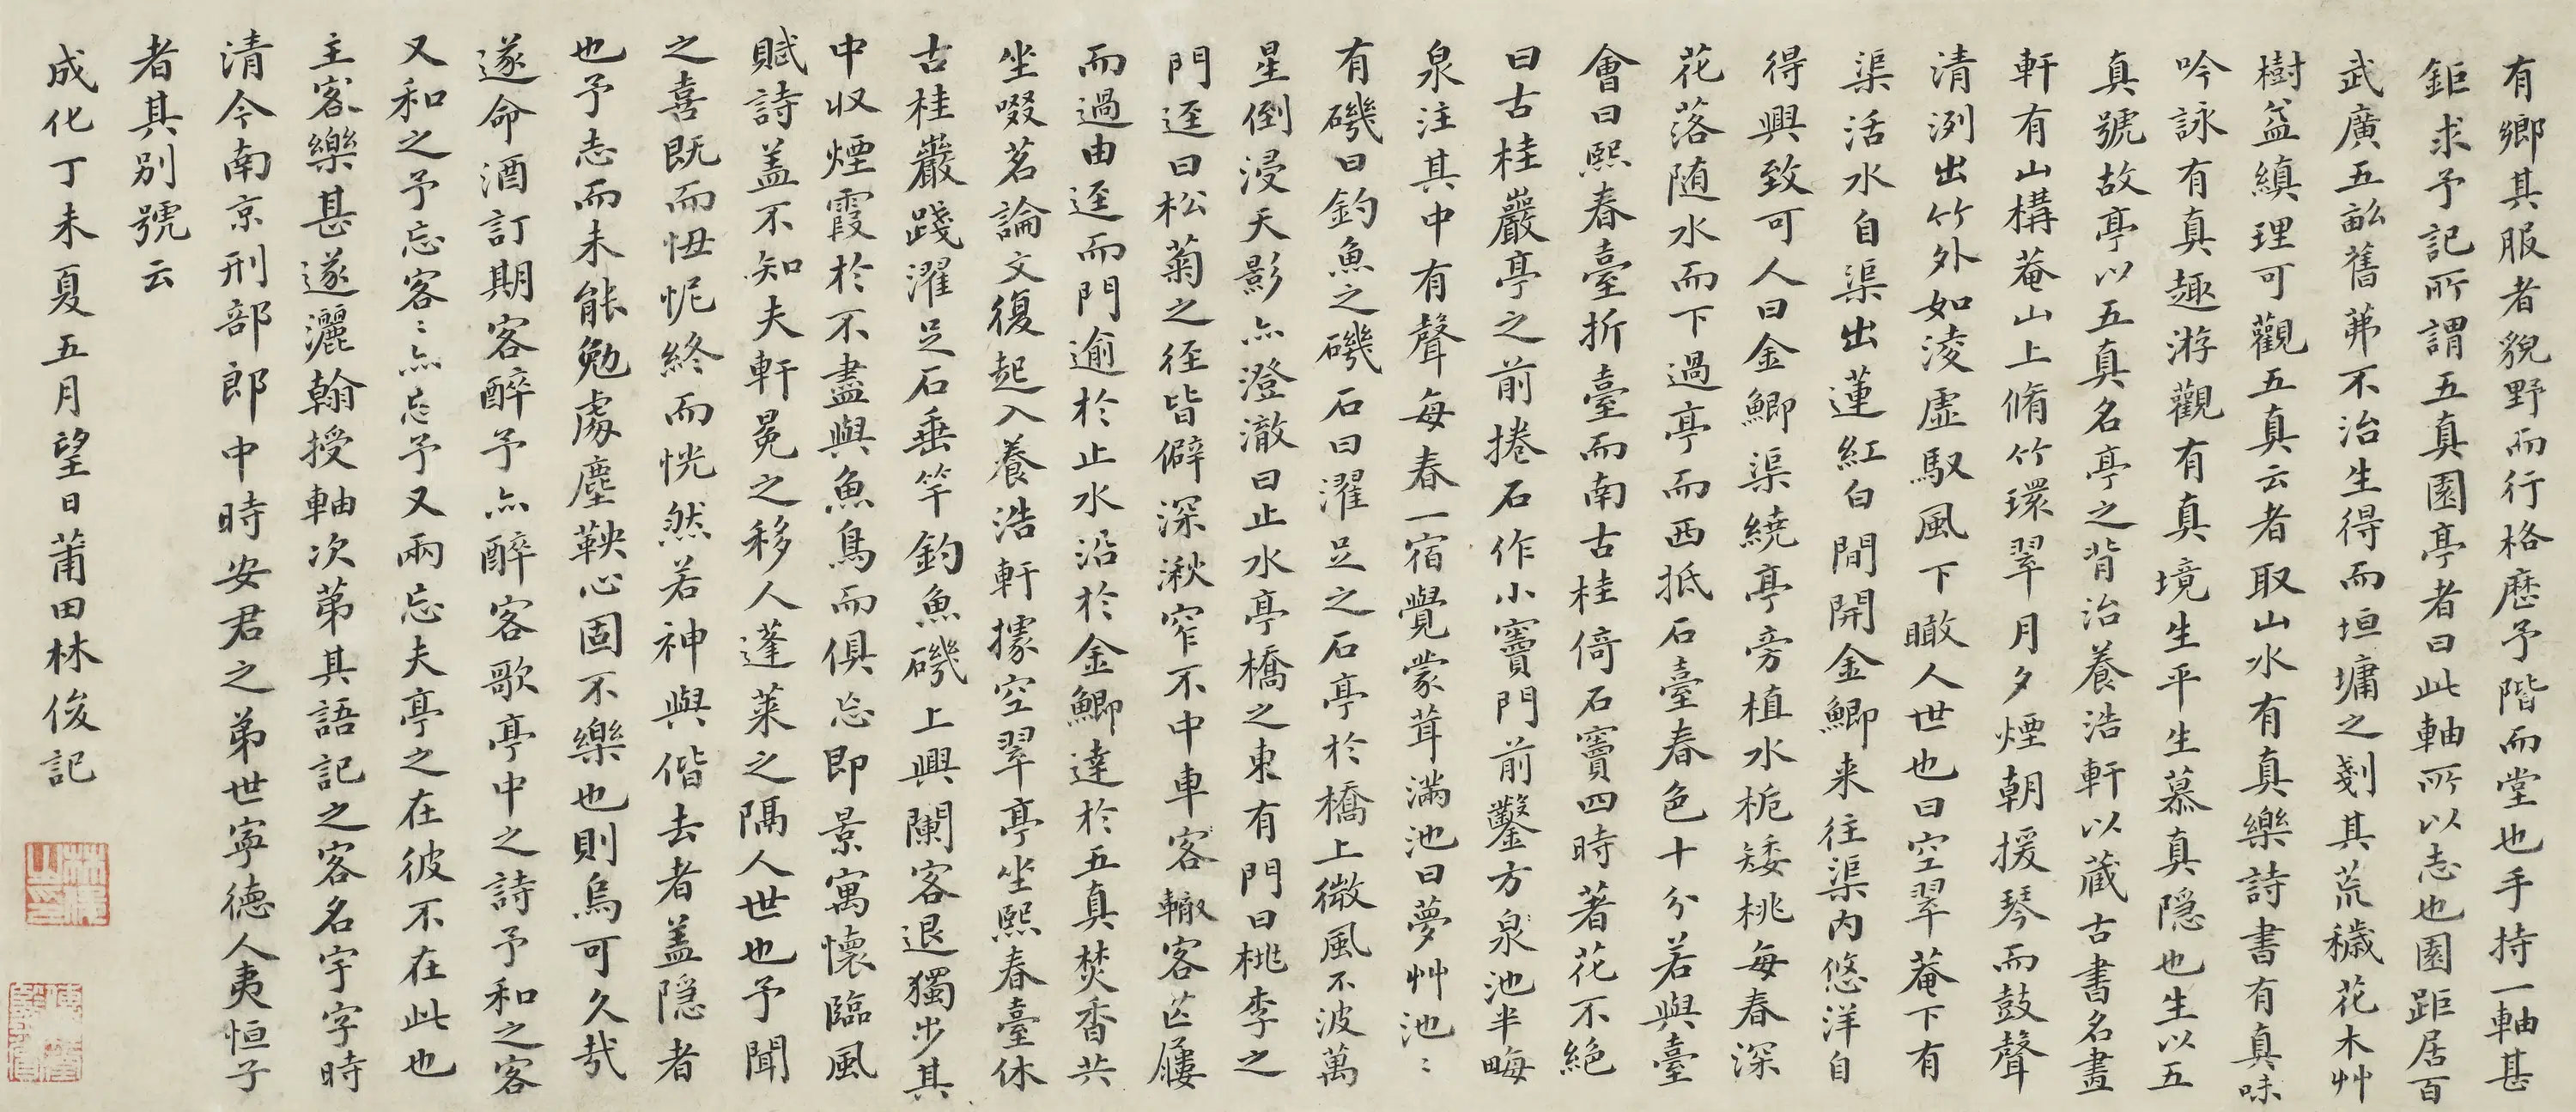 有鄉其服者貌野而行格歷予階而堂也手持一軸甚
鉅求予記所謂五真園亭者曰此軸所以志也園距居百
武廣五畝舊茀不治生得而垣墉之剗其荒穢花木艸
樹盆縝理可觀五真云者取山水有真樂詩書有真味
吟詠有真趣游觀有真境生平生慕真隱也生以五
真號故亭以五真名亭之背治養浩軒以藏古書名畫
軒有山構菴山上脩竹環翠月夕煙朝援琴而鼓聲
清洌出竹外如淩虛馭風下瞰人世也曰空翠菴下有
渠活水自渠出蓮紅白間開金鯽来往渠内悠洋自
得興致可人曰金鯽渠繞亭旁植水梔矮桃每春深
花落随水而下過亭而西抵石臺春色十分若與臺
會曰熙春臺折臺而南古桂倚石竇四時著花不絕
曰古桂巖亭之前捲石作小竇門門前鑿方泉池半畮
泉注其中有聲每春一宿覺蒙茸滿池曰夢艸池〻
有磯曰釣魚之磯石曰濯足之石亭於橋上微風不波萬
星倒浸天影亦澄澈曰止水亭橋之東有門曰桃李之
門逕曰松菊之径皆僻深湫窄不中車客轍客芒屨
而過由逕而門逾於止水沿於金鯽達於五真焚香共
坐啜茗論文復起入養浩軒據空翠亭坐熙春臺休
古桂巖踐濯足石垂竿釣魚磯上興闌客退獨步其
中収煙霞於不盡與魚鳥而俱忘即景寓懷臨風
賦詩盖不知夫軒冕之移人蓬莱之隔人世也予聞
之喜既而忸怩終而恍然若神與偕去者盖隱者
也予志而未能勉處塵鞅心固不樂也則烏可久㢤
遂命酒訂期客醉予亦醉客歌亭中之詩予和之客
又和之予忘客〻亦忘予又兩忘夫亭之在彼不在此也
主客樂甚遂灑翰授軸次苐其語記之客名宇字時
清今南京刑部郎中時安君之弟世寧德人夷恒子
者其别號云
成化丁未夏五月望日莆田林俊記